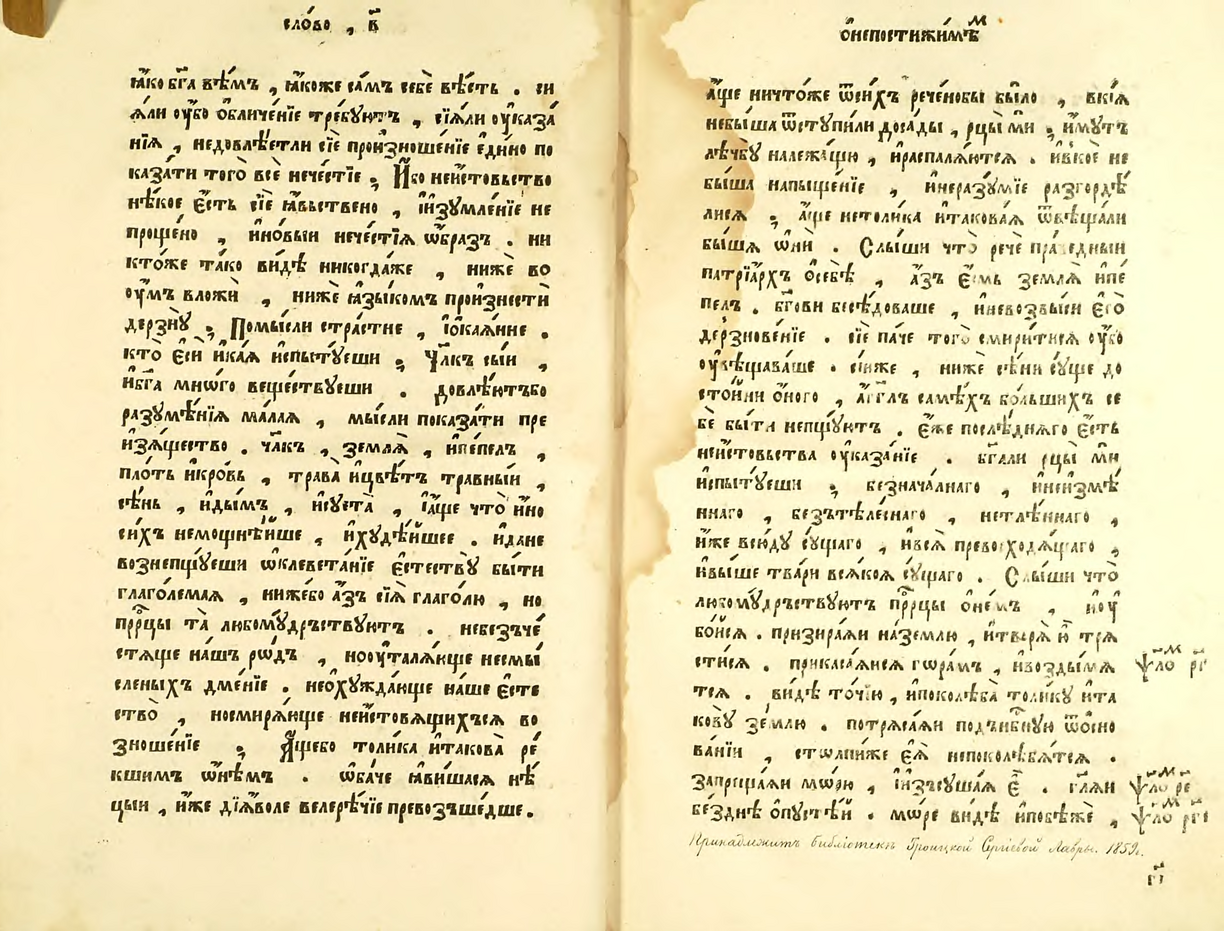 сло́во , в҃
ꙗ҆́ко бг҃а вѣ́мъ , ꙗ҆́коже са́мъ себѐ вѣ́сть . си
ꙗ҆́ли ᲂу҆́бо ѡ҆бличе́нїе тре́бꙋютъ , сїѧ́ли ᲂу҆каза́
нїѧ , недовлѣ́етли сїѐ произноше́нїе є҆ди́но по
каза́ти того̀ всѐ нече́стїе ; И҆́бо неи́стовьство
нѣ́кое є҆́сть сїѐ ꙗ҆́вьствено , і҆изꙋмле́нїе не
проще́но , и҆но́выи нече́стїѧ ѡ҆́бразъ . ни
кто́же та́ко ви́дѣ никогда́же , нижѐ во
ᲂу҆́мъ вложѝ , нижѐ ꙗ҆зы́комъ произнестѝ
дерзнꙋ̀ ; Помы́сли стра́стне , і҆ѻ҆каѧ́нне .
кто̀ є҆сѝ и҆ка́ѧ и҆спытꙋ́еши ; Чл҃къ сы́и ,
и҆бг҃а мнѡ́го веществꙋ́еши . довлѣ́ютъбо
разꙋмѣ́нїѧ ма́лаѧ , мы́сли показа́ти пре
и҆зѧ́щество . чл҃къ , землѧ̀ , и҆пе́пелъ ,
пло́ть и҆кро́вь , трава̀ и҆цвѣ́тъ травны́и ,
сѣ́нь , и҆ды́мъ , и҆сꙋета̀ , і҆а҆́ще что̀ и҆́но
си́хъ немощнѣ́йше , и҆хꙋдѣ́йшее . и҆да́не
вознепщꙋ́еши ѡ҆клевета́нїе є҆стествꙋ̀ бы́ти
глаго́лемаѧ , ниже́бо а҆́зъ сїѧ̀ глаго́лю , но
прⷪ҇рцы та̀ любомꙋ́дръствꙋютъ . небезъче́
стѧще на́шъ рѡ́дъ , ноᲂу҆талѧ́юще несмы́
сленыхъ дме́нїе . неѻ҆хꙋжда́юще на́ше є҆сте
ство̀ , носмирѧ́юще неи́стовѧщихъсѧ во
зноше́нїе ; А҆́щебо толи́ка и҆такова̀ ре́
кшимъ ѡ҆не́мъ . ѡ҆ба́че ꙗ҆ви́шасѧ нѣ́
цыи , и҆́же дїѧ́воле велерѣ́чїе превозъше́дше .
ѻ҆непостижи́мѣⷨ
а҆́ще ничто́же ѿси́хъ рече́нобы бы́ло , вкі́ѧ
небы́ша ѿстꙋпи́ли доса́ды , рцы́ ми ; и҆́мꙋтъ
лѣ́чбꙋ належа́щю , и҆распалѧ́ютсѧ . и҆вко́е не
бы́ша напыще́нїе , и҆неразꙋ́мїе разгордѣ́
лисѧ ; а҆́ще нетоли́ка и҆такова́ѧ ѿвѣща́ли
бы́шѧ ѡ҆нѝ . Слы́ши что̀ речѐ пра́ведныи
патрїа́рхъ ѻ҆себѣ̀ , а҆́зъ є҆́смь землѧ̀ и҆пе́
пелъ . бг҃ови бесѣ́доваше , и҆невозвы́си є҆го̀
дерзнове́нїе . сїѐ па́че того̀ смири́тисѧ ᲂу҆́бо
ᲂу҆вѣщава́ше . сїи́же , нижѐ сѣ́ни сꙋ́ще до
сто́йни ѻ҆́ного , а҆́гг҃лъ самѣ́хъ бо́льшихъ се
бѐ бы́ти непщꙋ́ютъ . є҆́же послѣ́днѧго є҆́сть
неи́стовьства ᲂу҆каза́нїе . бг҃али рцы́ ми
и҆спытꙋ́еши ; безнача́лнаго , и҆неизмѣ́
ннаго , безътѣле́снаго , нетлѣ́ннаго ,
и҆́же всю́дꙋ сꙋ́щаго , и҆всѧ̀ превосходѧ́щаго ,
и҆вы́ше тва́ри всѧ́коѧ сꙋ́щаго . Слы́ши что̀
любомꙋ́дръствꙋютъ прⷪ҇рцы ѻ҆не́мъ , и҆ᲂу҆
бо́йсѧ . призира́ѧи на́землю , и҆творѧ̀ ю҆̀ трѧ
сти́сѧ . прикаса́ѧисѧ гѡра́мъ , и҆воздымѧ́
тсѧ . ви́дѣ то́чїю , и҆поколѣ́ба толи́кꙋ и҆та
ко́вꙋ зе́млю . потрѧса́ѧи подънб҃нꙋю ѿѻ҆сно
ва́нїи , стѡлпи́же є҆ѧ̀ непоколѣ́бѧтсѧ .
запреща́ѧи мѡ́рю , і҆изъсꙋша́ѧ є҆̀ . гл҃ѧи
бе́зднѣ ѻ҆пꙋстѣ́й . мѡ́ре ви́дѣ и҆побѣ́же ,
ѱаⷧ҇ло рг҃
ѱаⷧ҇ло ре҃
ѱаⷧ҇ло рг҃і
Принадлежитъ библіотекѣ Троицкой Сергіевой Лавры. 1859г.
г҃і